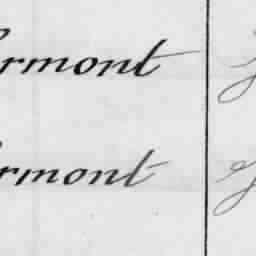 ermont
ermont